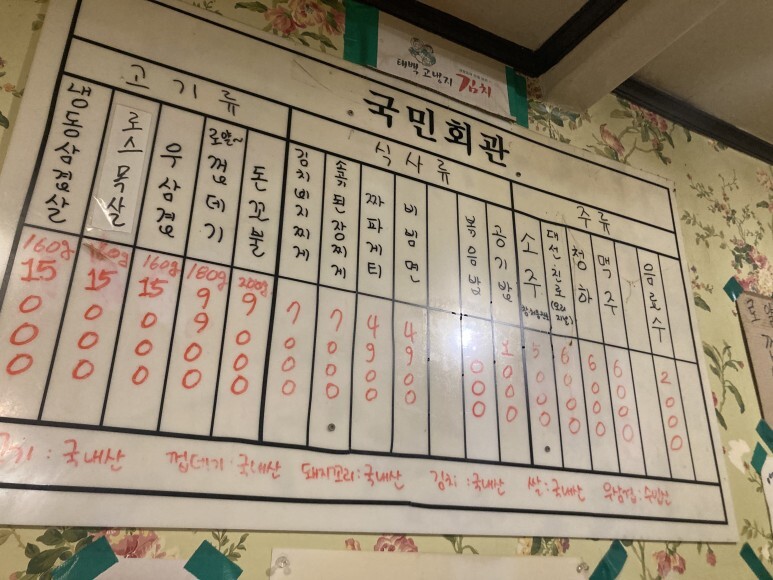 태백 고냉지 김치
국민회관
고기류
식사류
주류
냉동삼겹살 160g 15000
로스목살 160g 15000
우삼겹 160g 15000
로얄~ 껍데기 180g 9900
돈꼬불 200g 9000
김치비지찌게 7000
된장찌게 7000
짜파게티 4900
비빔면 4900
볶음밥 000
공기밥 1000
소주 5000
대선 진로(오리지날) 6000
청하 6000
맥주 6000
음료수 2000
고기 : 국내산 껍데기 : 국내산 돼지꼬리 : 국내산 김치 : 국내산 쌀 : 국내산 우삼겹 : 수입산